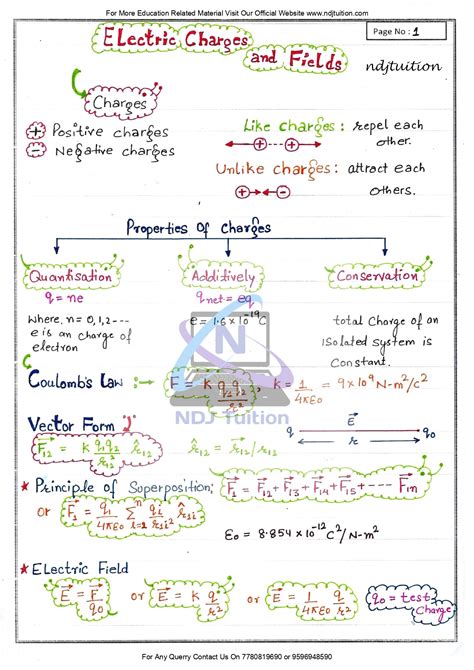 For More Education Related Material Visit Our Official Website www.ndjtuition.com
Electric Charges
and Fields
Page No : 1
ndjtuition
Charges
⊕ Positive charges
⊖ Negative charges
Like charges : repel each
other.
←⊕ ⊕→
Unlike charges : attract each
others.
⊕→←⊖
Properties Of Charges
Quantisation
Additively
Conservation
q = ne
qnet = eq
where, n = 0, 1, 2 ---
e is an charge of
electron
e = 1.6 × 10⁻¹⁹ C
total Charge of an
isolated system is
Constant.
Coulomb's Law :→ F = K q₁q₂/r², K = 1/4πε₀ = 9×10⁹ N-m²/c²
Vector Form
F⃗₁₂ = K q₁q₂/r²₁₂ r̂₁₂
r̂₁₂ = r⃗₁₂/r₁₂
q E⃗ q₀
r
NDJ Tuition
★ Principle of Superposition; F⃗₁ = F⃗₁₂ + F⃗₁₃ + F⃗₁₄ + F⃗₁₅ + --- F⃗₁n
or F⃗₁ = q₁/4πε₀ Σ qi/r²₁i r̂₁i
ε₀ = 8.854 × 10⁻¹² C²/N-m²
★ Electric Field
E⃗ = F⃗/q₀ or E⃗ = K q/r² or E = 1/4πε₀ q/r² q₀ = test
Charge
For Any Querry Contact Us On 7780819690 or 9596948590